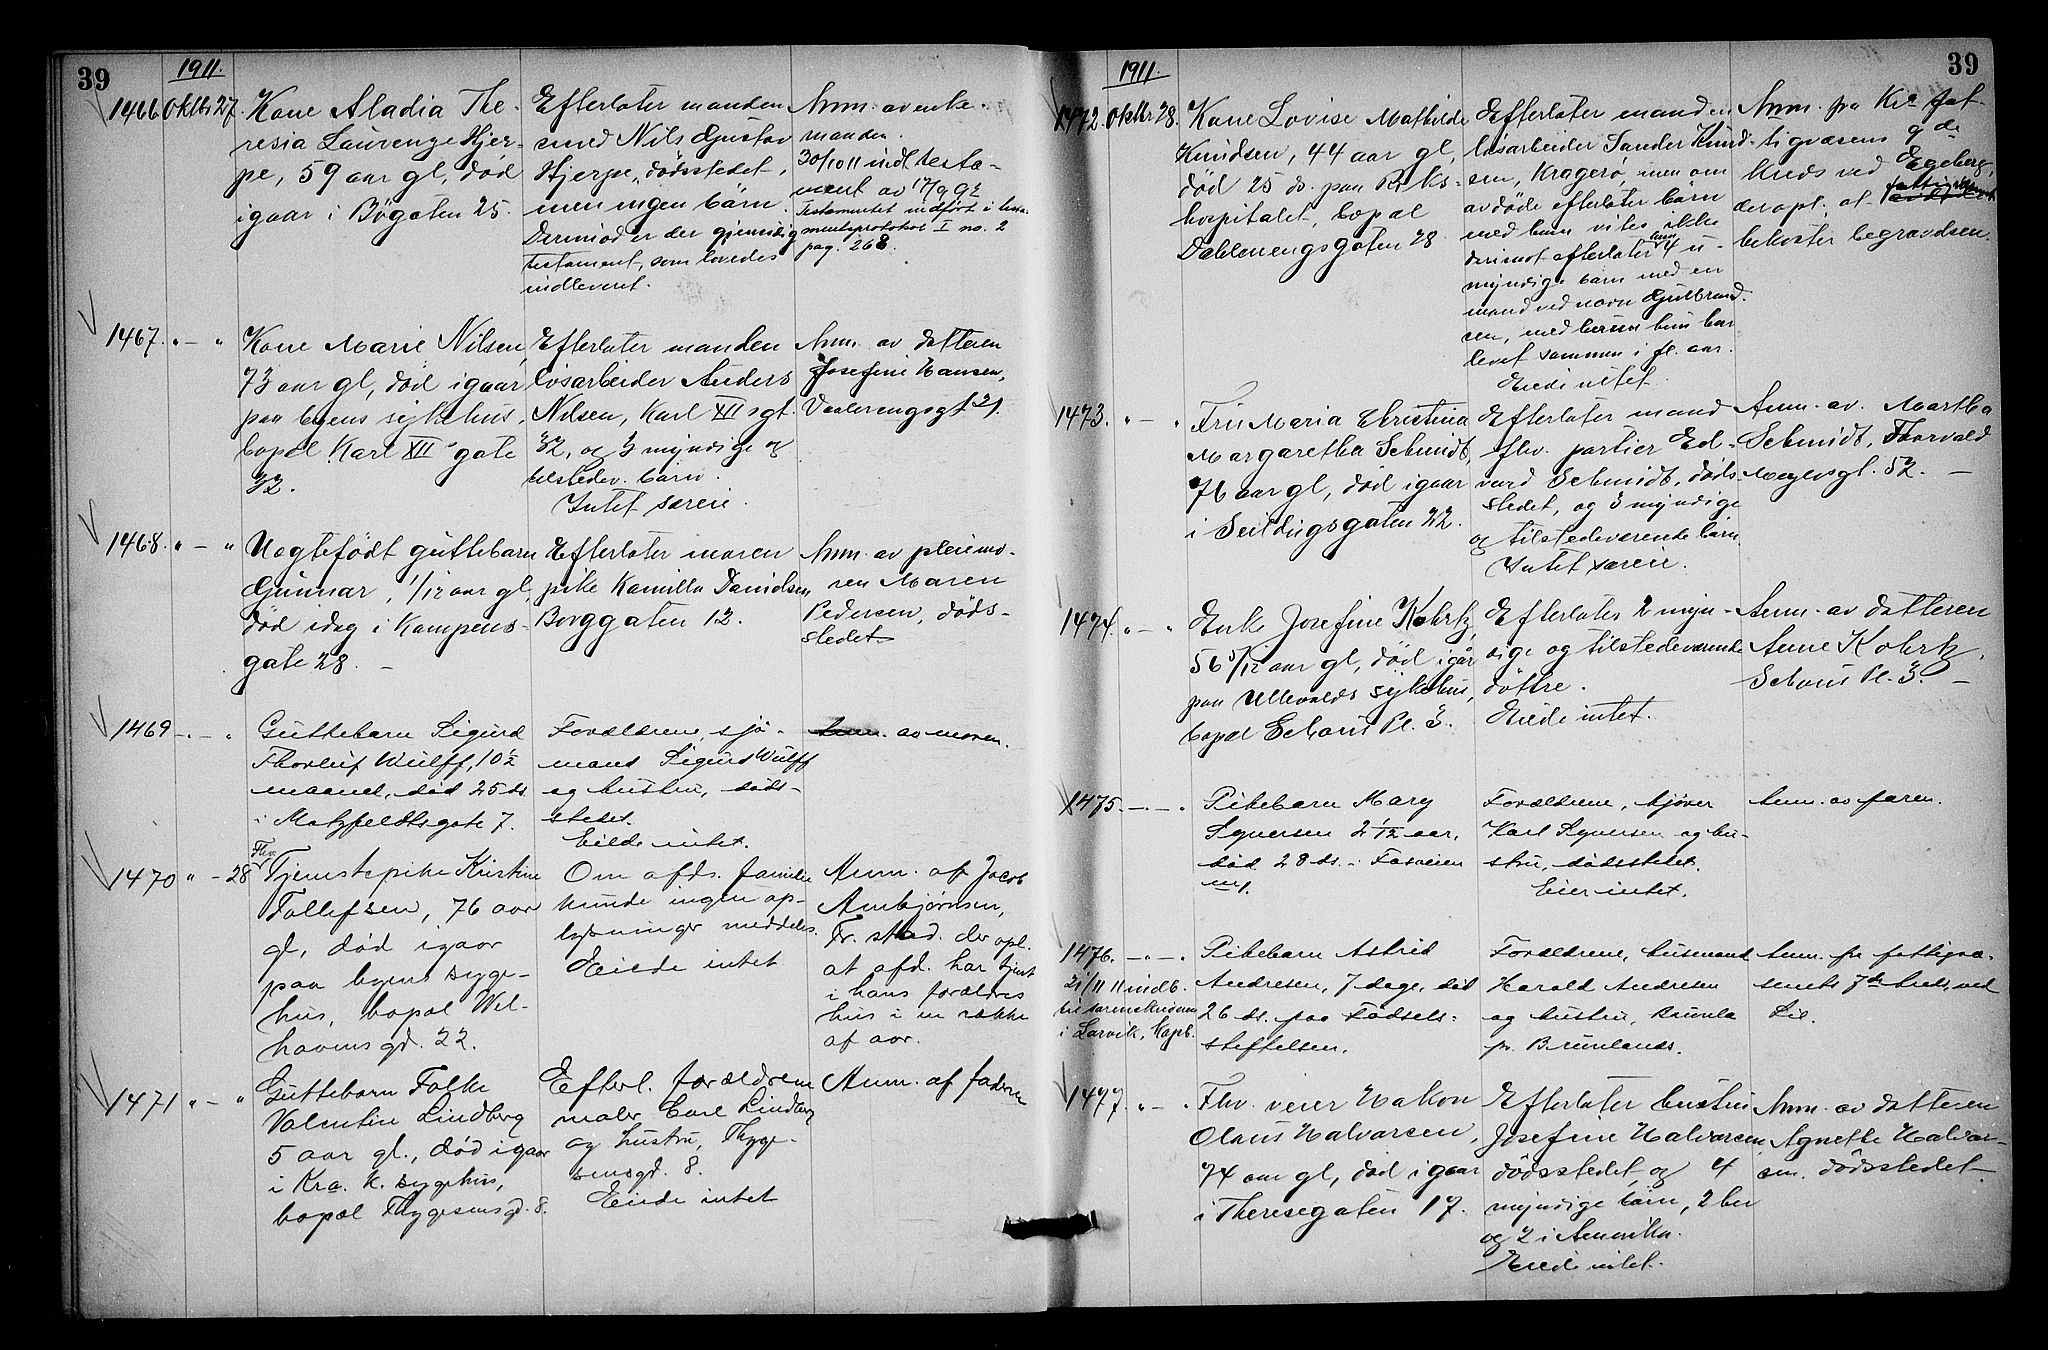 39
1911.
1466 Oktbr 27.
Kone Aladia The-
resia Laurenze Hjer-
pe, 59 aar gl, død
igaar i Bøgaten 25.
Efterlater manden
smed Nils Gustav
Hjerpe, dødsstedet,
men ingen børn.
Derimod er der gjensidig
testament, som lovedes
indleveret.
Anm. av enke-
manden.
30/10 11 indl. testa-
ment av 17/9 92
Testamentet indført i testa-
mentsprotokol I no. 2
pag. 268.
1467. " — "
Kone Marie Nilsen,
73 aar gl, død igaar
paa byens sykehus,
bopæl Karl XII gate
32.
Efterlater manden
løsarbeider Anders
Nilsen, Karl XII sgt.
32, og 3 myndige og
tilstedev. børn.
Intet særeie.
Anm. av datteren
Josefine Hansen,
Vaalerengsgt 21.
1468. " — "
Uegtefødt guttebarn
Gunnar, 1/12 aar gl,
død idag i Kampens-
gate 28. —
Efterlater moren
pike Kamilla Danielsen,
Borggaten 12.
Anm. av pleiemo-
ren Maren
Pedersen, døds-
stedet
1469 — . — "
Guttebarn Sigurd
Thorleif Wulff, 10½
maaned, død 25 ds.
i Motzfeldtsgate 7.
Forældrene, sjø-
mand Sigurd Wulff
og hustru, døds-
stedet.
Eiede intet.
Anm. av moren.
1470 " — 28
Fhv.
Tjenstepike Kristine
Tollefsen, 76 aar
gl, død igaar
paa byens syge-
hus, bopæl Wel-
havensgd. 22.
Om afds. familie
kunde ingen op-
lysninger meddeles.
Eiede intet
Anm. af Jacob
Ambjørnsen,
Fr.stad. der opl.
at afd. har tjent
i hans forældres
hus i en række
af aar.
1471 " — "
Guttebarn Folke
Valentin Lindberg
5 aar gl., død igaar
i Kra. k. sygehus,
bopæl Thygesensgd. 8.
Efterl. forældrene
maler Carl Lindberg
og hustru, Thyge-
sensgd. 8.
Eiede intet
Anm. af faderen
39
1911.
1472. Oktbr 28.
Kone Lovise Mathilde
Knudsen, 44 aar gl,
død 25 ds. paa Riks-
hospitalet, bopæl
Dælenengsgaten 28
Efterlater manden
løsarbeider Sander Knud-
sen, Kragerø, men om
avdøde efterlater børn
med ham vites ikke
derimot efterlater hun 4 u-
myndige børn med en
mand ved navn Gulbrand-
sen, med hvem hun har
levet sammen i fl. aar.
Eiede intet.
Anm. pr Kra fat-
tigvæsens 9de
kreds ved Egeberg,
der opl. at fattigvæsenet
bekoster begravelsen.
1473. " — "
Fru Maria Christina
Margaretha Schmidt,
76 aar gl, død igaar
i Seildugsgaten 22.
Efterlater mand
fhv. portier Ed-
vard Schmidt, døds-
stedet, og 3 myndige
og tilstedeværende børn.
Intet særeie.
Anm. av. Martha
Schmidt, Thorvald
Meyersgt. 52. —
1474. " — "
Enke Josefine Kohrtz,
56 5/12 aar gl, død igår
paa Ullevaalds sykehus,
bopæl Schous Pl. 3.
Efterlater 2 myn-
dige og tilstedeværende
døttre.
Eiede intet.
Anm. av datteren
Anne Kohrtz,
Schous Pl. 3. —
1475. — " — "
Pikebarn Mary
Syversen 2 1/12 aar,
død 28 ds. i Fossveien
Forældrene, kjører
Karl Syversen og hu-
stru, dødsstedet.
Eier intet.
Anm. av faren.
1476. — " — "
21/11 11 indb.
i Larvik,
Pikebarn Astrid
Andresen, 7 dage, død
26 ds. paa Fødsels-
stiftelsen.
Forældrene, husmand
Harald Andresen
og hustru, Brunla
pr. Brunlanes.
Anm. fra fattigvæ-
senets 7de kreds, ved
Lie.
1477. " — "
Fhv. veier Hakon
Olaus Halvorsen,
74 aar gl, død igaar
i Theresegaten 17.
Efterlater hustru
Josefine Halvorsen
dødsstedet, og 4
myndige børn, 2 her
og 2 i Amerika.
Eiede intet.
Anm. av datteren
Agnethe Halvor-
sen. dødsstedet